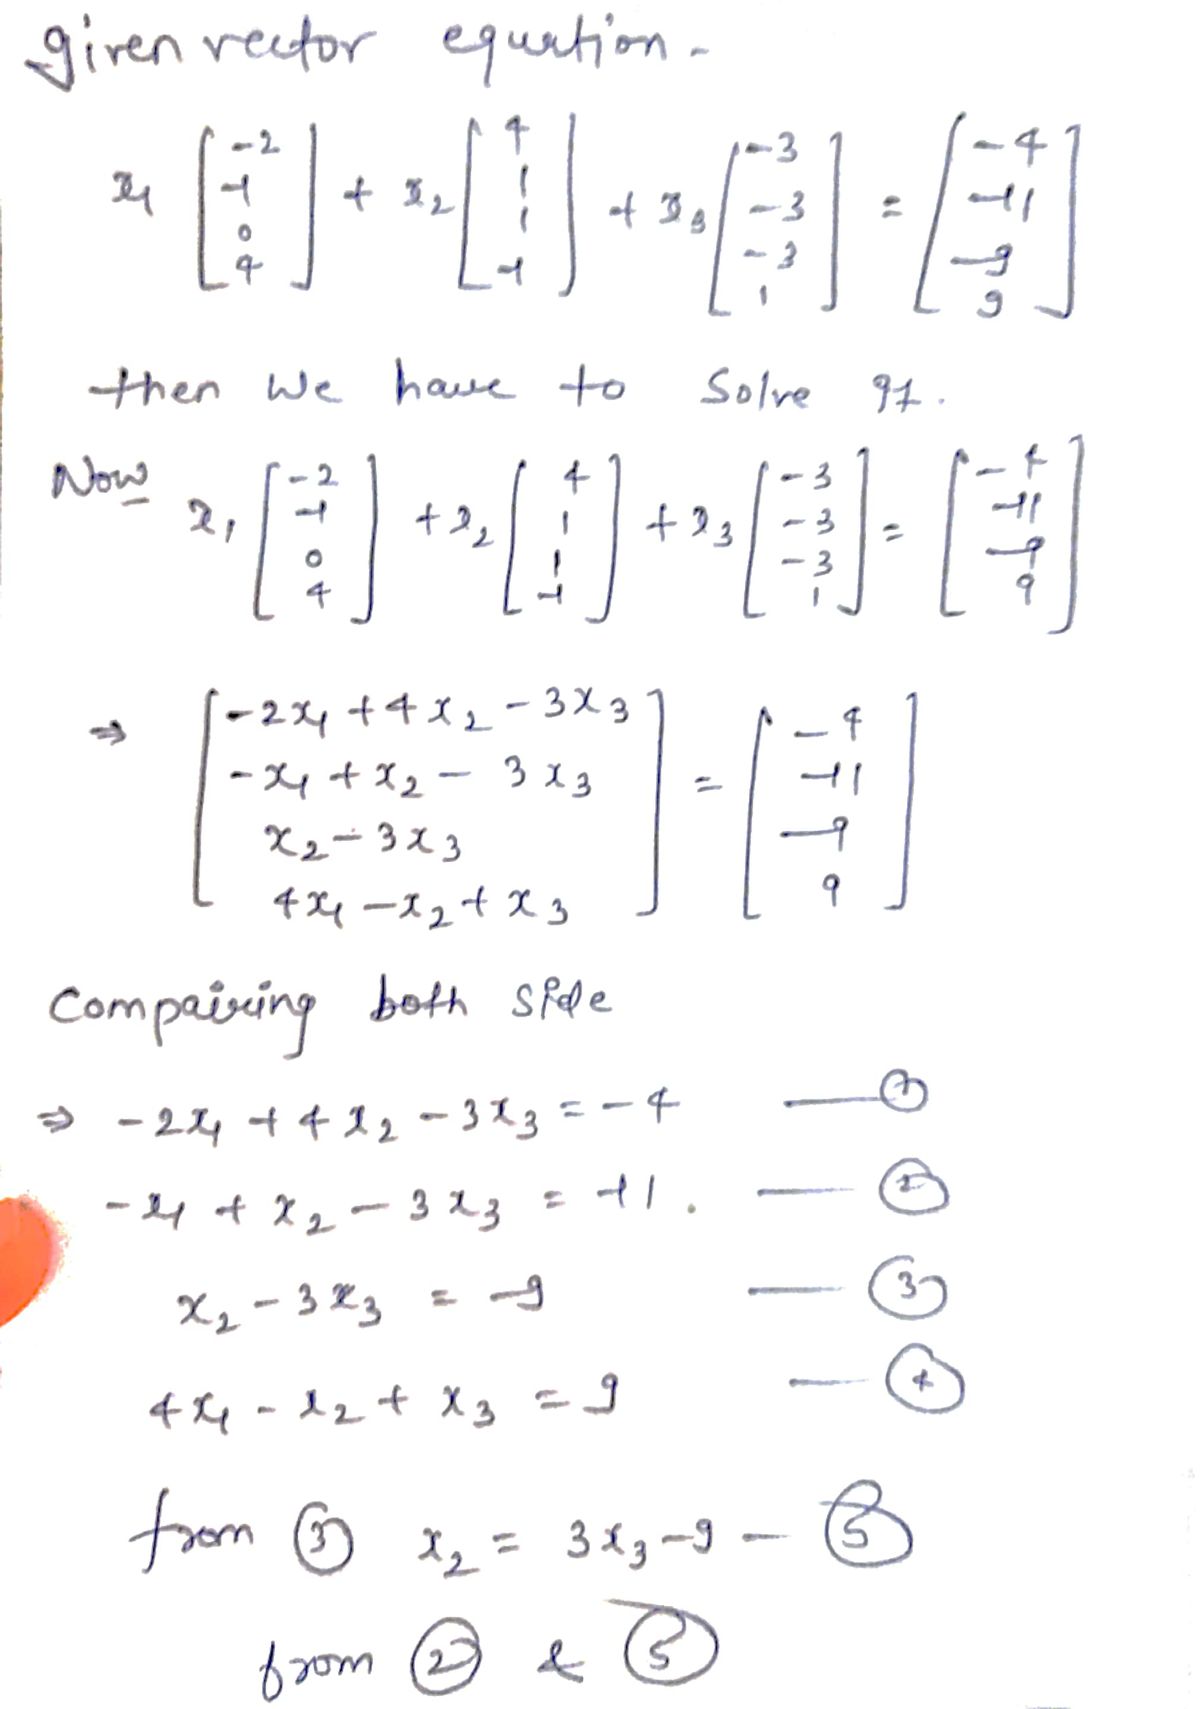 given vector equation -
x₁ [-2 -1 0 4] + x₂ [4 1 1 -1] + x₃ [-3 -3 -3 1] = [-4 -11 -9 9]
then we have to Solve it.
Now x₁ [-2 -1 0 4] + x₂ [4 1 1 -1] + x₃ [-3 -3 -3 1] = [-4 -11 -9 9]
⇒ [-2x₁ + 4x₂ - 3x₃
-x₁ + x₂ - 3x₃
x₂ - 3x₃
4x₁ - x₂ + x₃] = [-4 -11 -9 9]
Compairing both side
⇒ -2x₁ + 4x₂ - 3x₃ = -4 — ①
-x₁ + x₂ - 3x₃ = -11. — ②
x₂ - 3x₃ = -9 — ③
4x₁ - x₂ + x₃ = 9 — ④
from ③ x₂ = 3x₃ - 9 — ⑤
from ② & ⑤